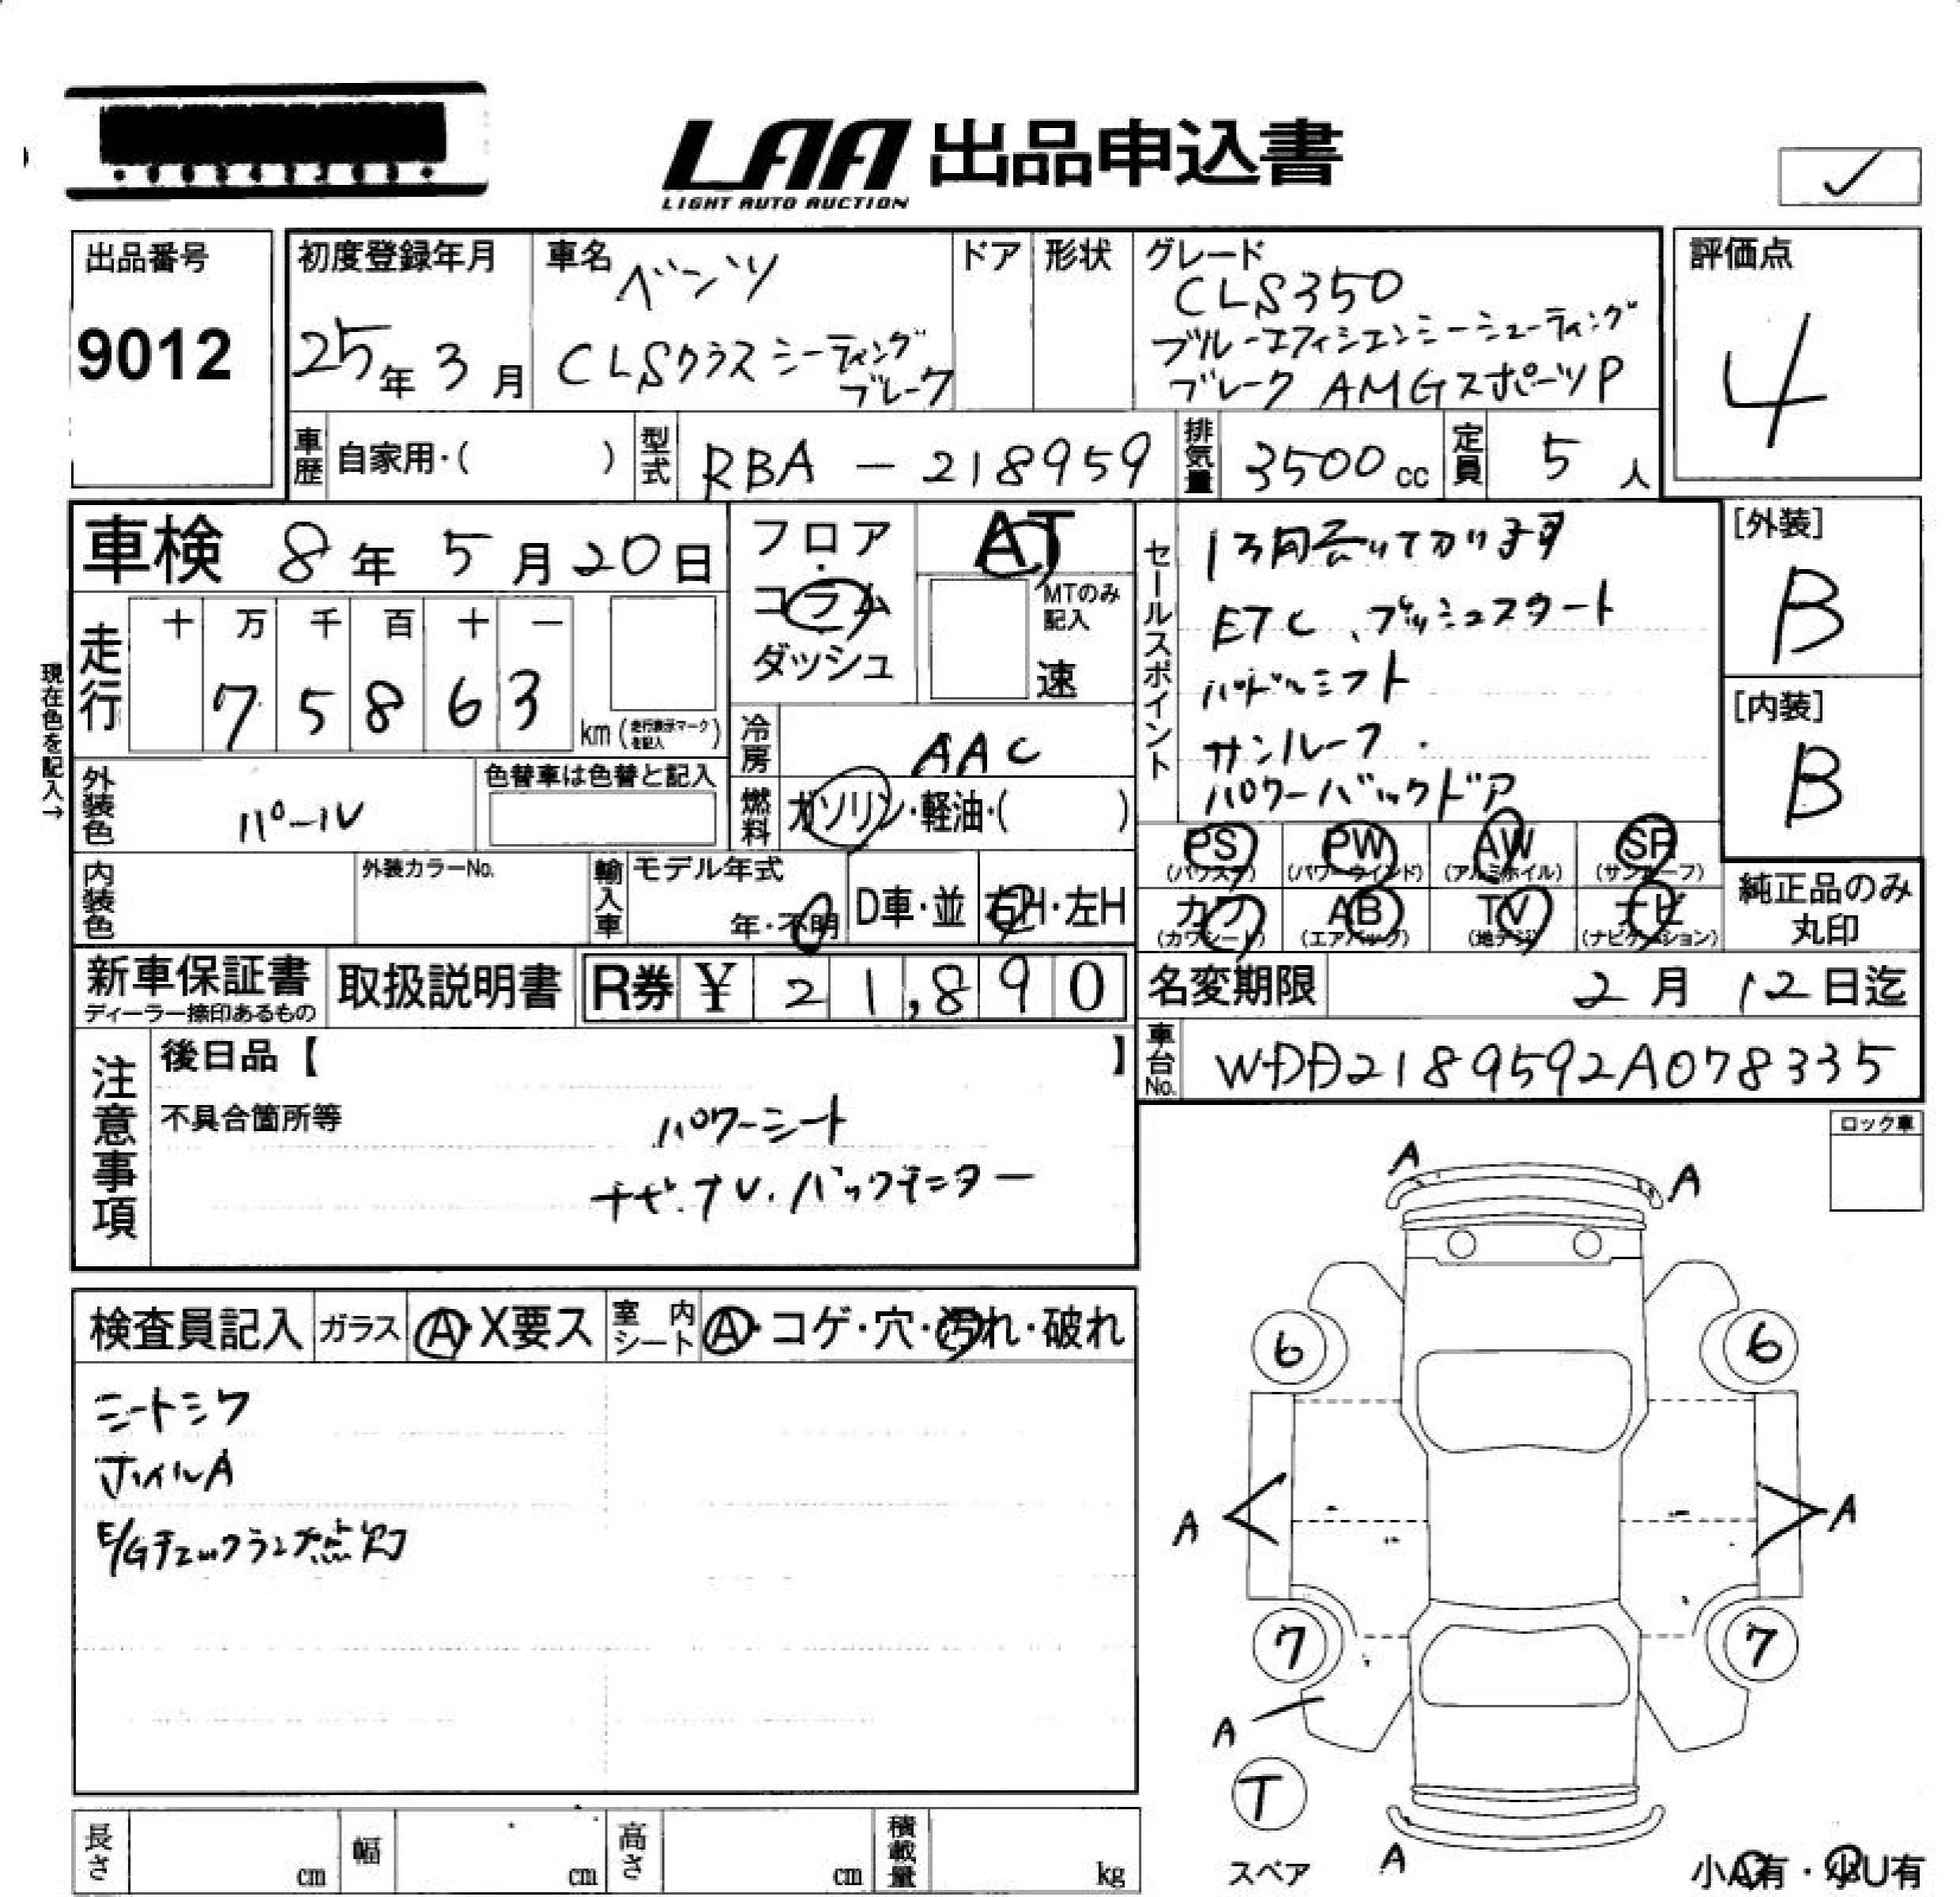 LAA 出品申込書
LIGHT AUTO AUCTION
出品番号
9012
初度登録年月
25年3月
車名
ベンツ
CLSクラス シーティング
ブレーク
ドア
形状
グレード
CLS350
ブルーエフィシエンシーシューティング
ブレーク AMGスポーツP
評価点
4
車歴 自家用・( )
型式 RBA-218959
排気量 3500cc
定員 5人
車検 8年5月20日
フロア
コラム
ダッシュ
AT
MTのみ
記入
速
セールスポイント
ETC、プッシュスタート
パドルシフト
サンルーフ
パワーバックドア
[外装]
B
[内装]
B
現在色を記入→
走行
十 万 千 百 十 一
7 5 8 6 3
km (走行表示マークを記入)
冷房 AAC
外装色 パール
色替車は色替と記入
燃料 ガソリン・軽油・( )
PS (パワステ)
PW (パワーウインド)
AW (アルミホイル)
SR (サンルーフ)
内装色
外装カラーNo.
輸入車
モデル年式
年・不明
D車・並
右H・左H
カワ (カワシート)
AB (エアバック)
TV (地デジ)
ナビ (ナビゲーション)
純正品のみ
丸印
新車保証書
ディーラー捺印あるもの
取扱説明書
R券 ¥ 21,890
名変期限 2月12日迄
車台No. WDD2189592A078335
注意事項
後日品【 】
不具合箇所等
パワーシート
ナビ.TV.バックモニター
ロック車
検査員記入
ガラス A・X要ス
室内シート A・コゲ・穴・汚れ・破れ
シートシワ
ホイルA
E/Gチェックランプ点灯
A
A
6
6
A
A
7
7
A
T
スペア
A
小A有・小U有
長さ cm
幅 cm
高さ cm
積載量 kg